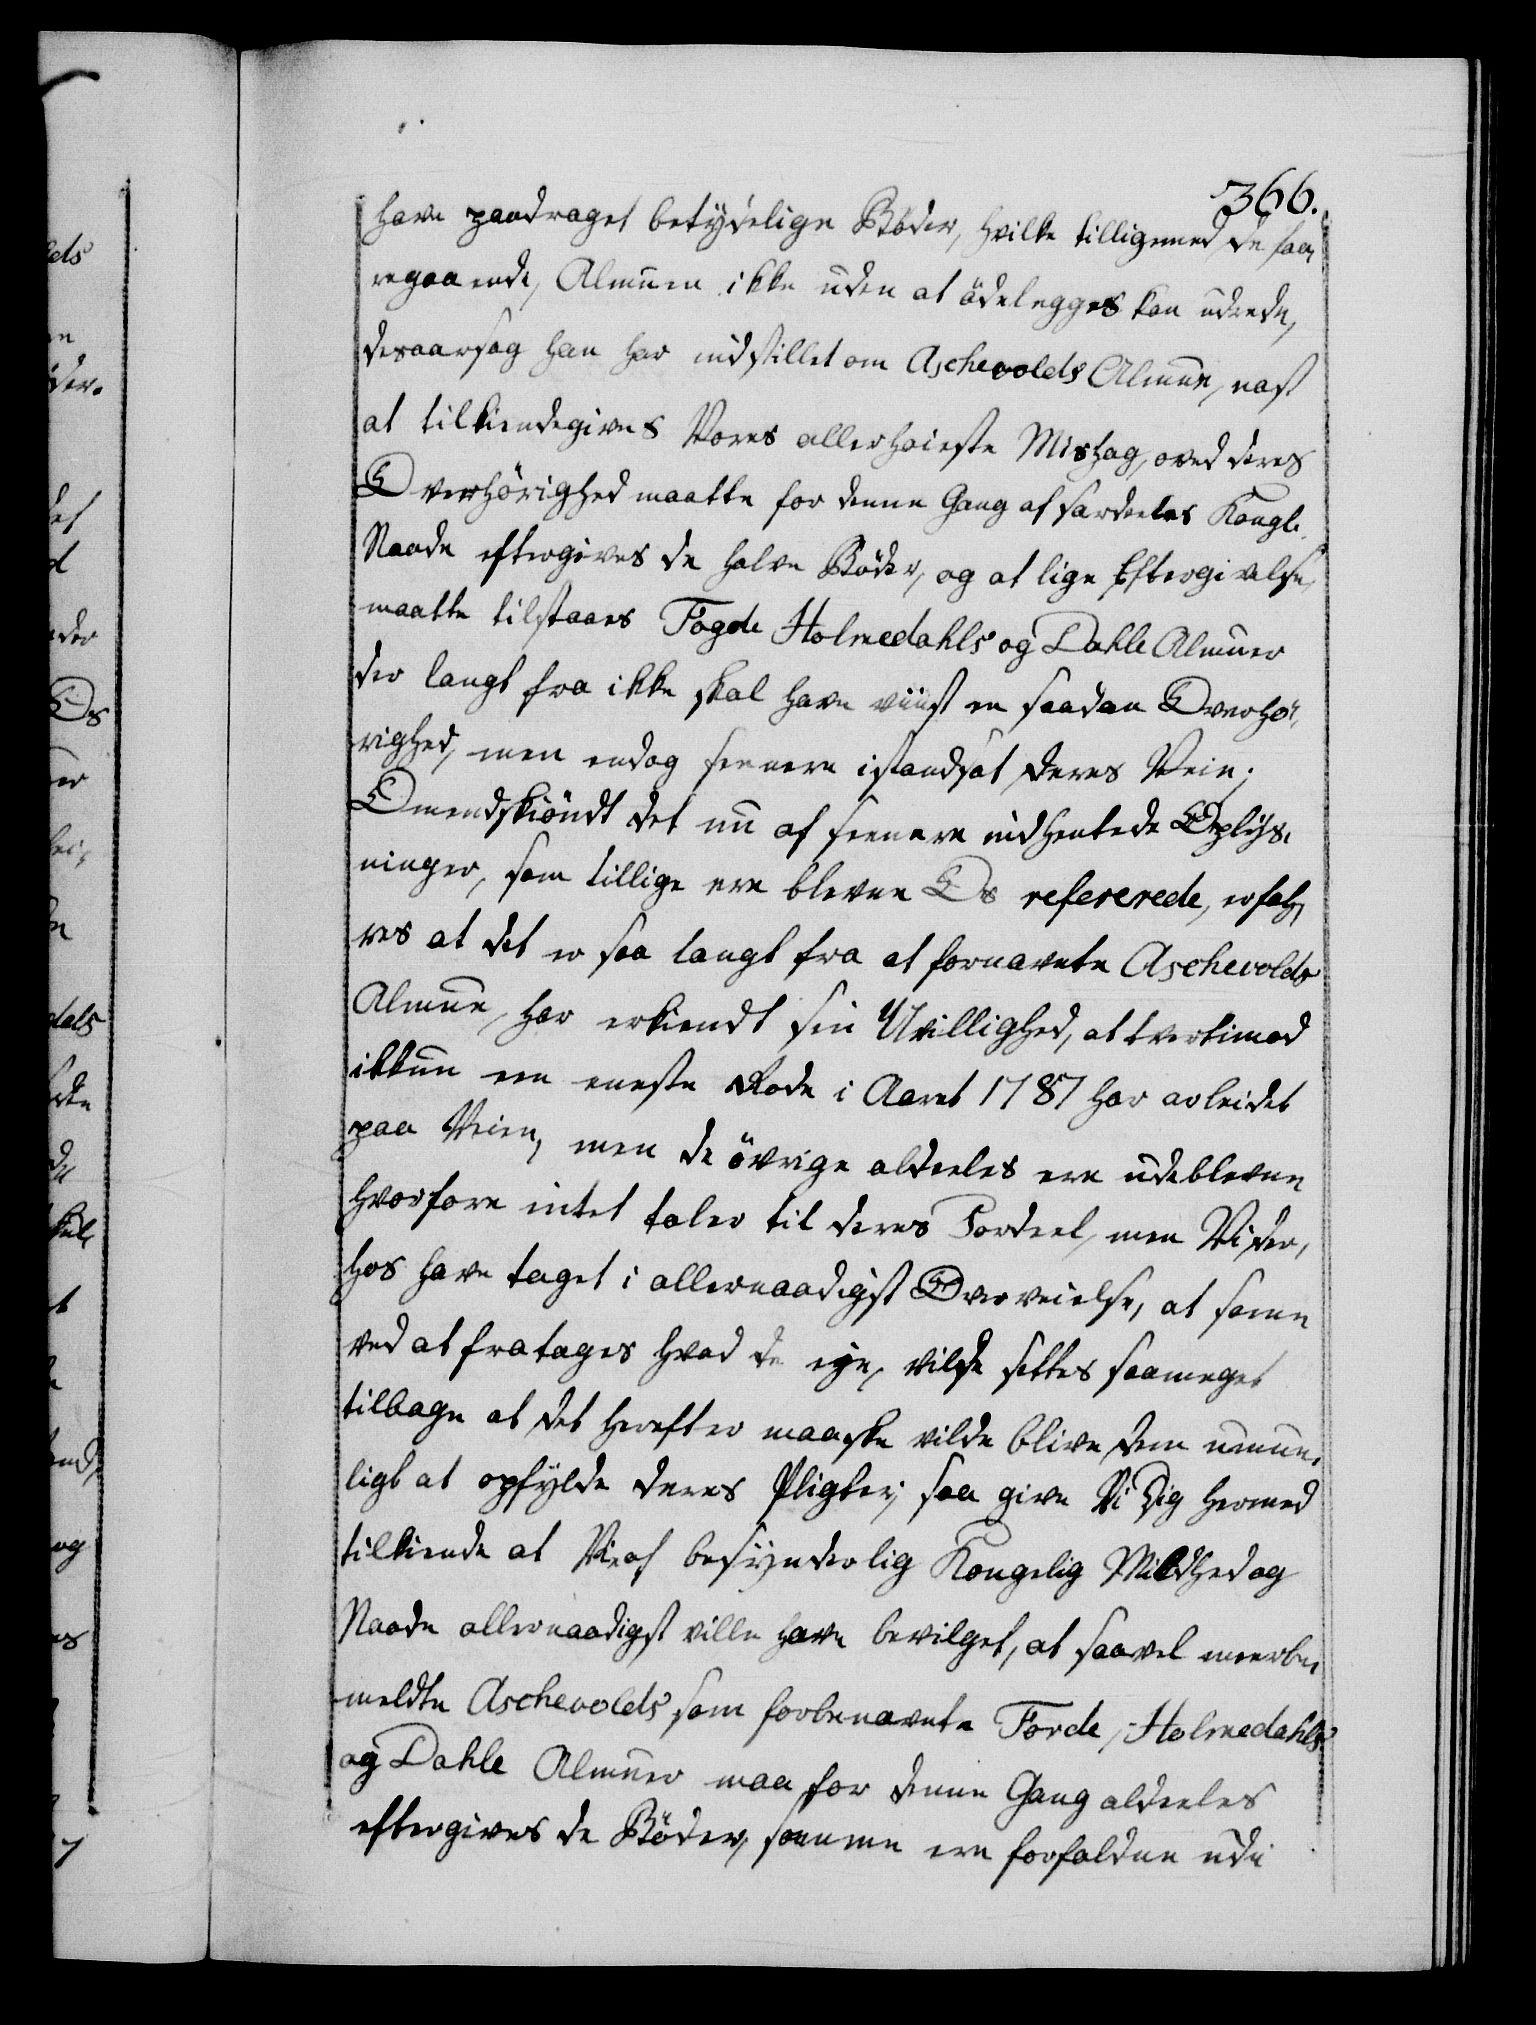 366.
have paadraget betydelige Böder, hvilke tilligemed de faa
regaaende, Almuen ikke uden at ödelegges kan udrede,
desaarsag han har indstillet om Aschevolds Almue, nest
at tilkiendegives Vores allerhöieste Mishag, oved deres
Overhörighed maatte for denne Gang af særdeeles Kongl.
Naade eftergives de halve Böder, og at lige Eftergivelse,
maatte tilstaaes Fogde Holmedahls og Dahle Almuer
der langt fra ikke skal have viist en saadan Overhö,
righed, men endog seenere istandsat deres Veie;
Omendskiöndt det nu af seenere indhentede Oplys,
ninger, som tillige ere blevne Os refererede, erfah,
res at det er saa langt fra at fornævnte Aschevolds
Almue, har erkiendt sin Uvillighed, at tvertimod
ikkun een eneste Rode i Aaret 1787 har arbeidet
paa Veien, men de övrige aldeeles ere udeblevne
hvorfore intet taler til deres Fordeel, men Vi der,
hos have taget i allernaadigst Overveielse, at samme
ved at fratages hvad de eije, vilde settes saameget
tilbage at det herefter maaske vilde blive dem umue,
ligt at opfylde deres Pligter; saa give Vi Dig hermed
tilkiende at Vi af besynderlig Kongelig Mildhed og
Naade allernaadigst ville have bevilget, at saavel meerbe,
meldte Aschevolds som forbenævnte Förde, Holmedahls
og Dahle Almuer maa for denne Gang aldeeles
eftergives de Böder, somme ere forfaldne udi